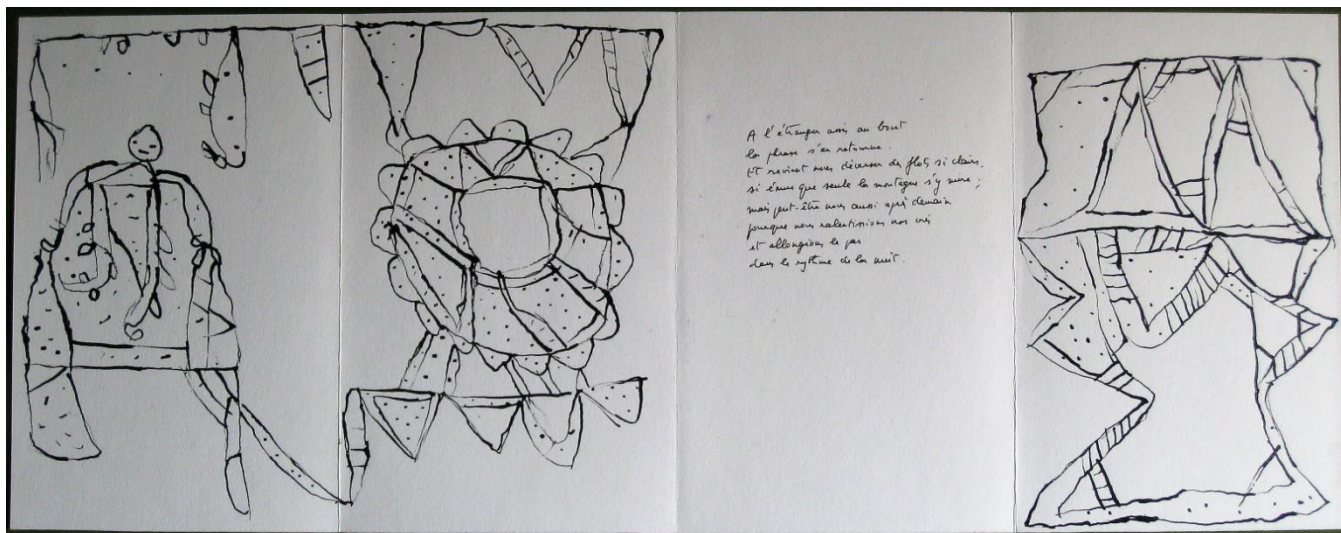 A l'étranger assis au bout
la phrase s'en retourne.
Et revient nous déverser des flots si clairs,
si émue que seule la montagne s'y mire ;
mais peut-être nous aussi après demain
pourvu que nous ralentissions nos cris
et allongions le pas
dans le rythme de la nuit.